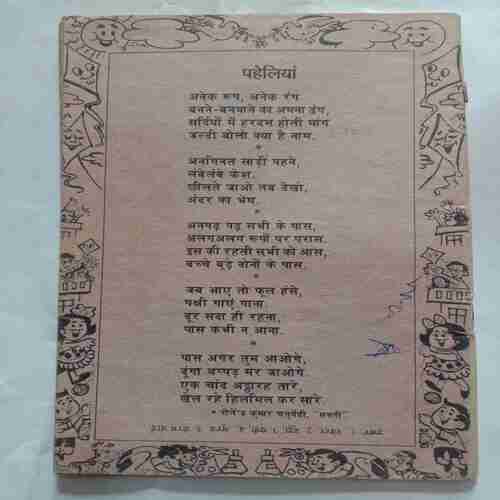 पहेलियां
अनेक रूप, अनेक रंग
बनने-बनवाने का अपना ढंग,
सर्दियों में हरदम होती मांग
जल्दी बोलो क्या है नाम.
*
अनगिनत साड़ी पहने,
लंबेलंबे केश.
छीलते जाओ तब देखो,
अंदर का भेष.
*
अनपढ़ पढ़ सभी के पास,
अलगअलग रूपों पर परास.
इस की रहती सभी को आस,
बच्चे बड़े दोनों के पास.
*
जब आए तो फूल हंसे,
पक्षी गाएं गाना.
दूर सदा ही रहना,
पास कभी न आना.
*
पास अगर तुम आओगे,
दूंगा थप्पड़ मर जाओगे.
एक चांद अट्ठारह तारे,
खेल रहे हिलमिल कर सारे.
कुमार चतुर्वेदी,
उत्तर: 1. स्वेटर 2. भुट्टा 3.